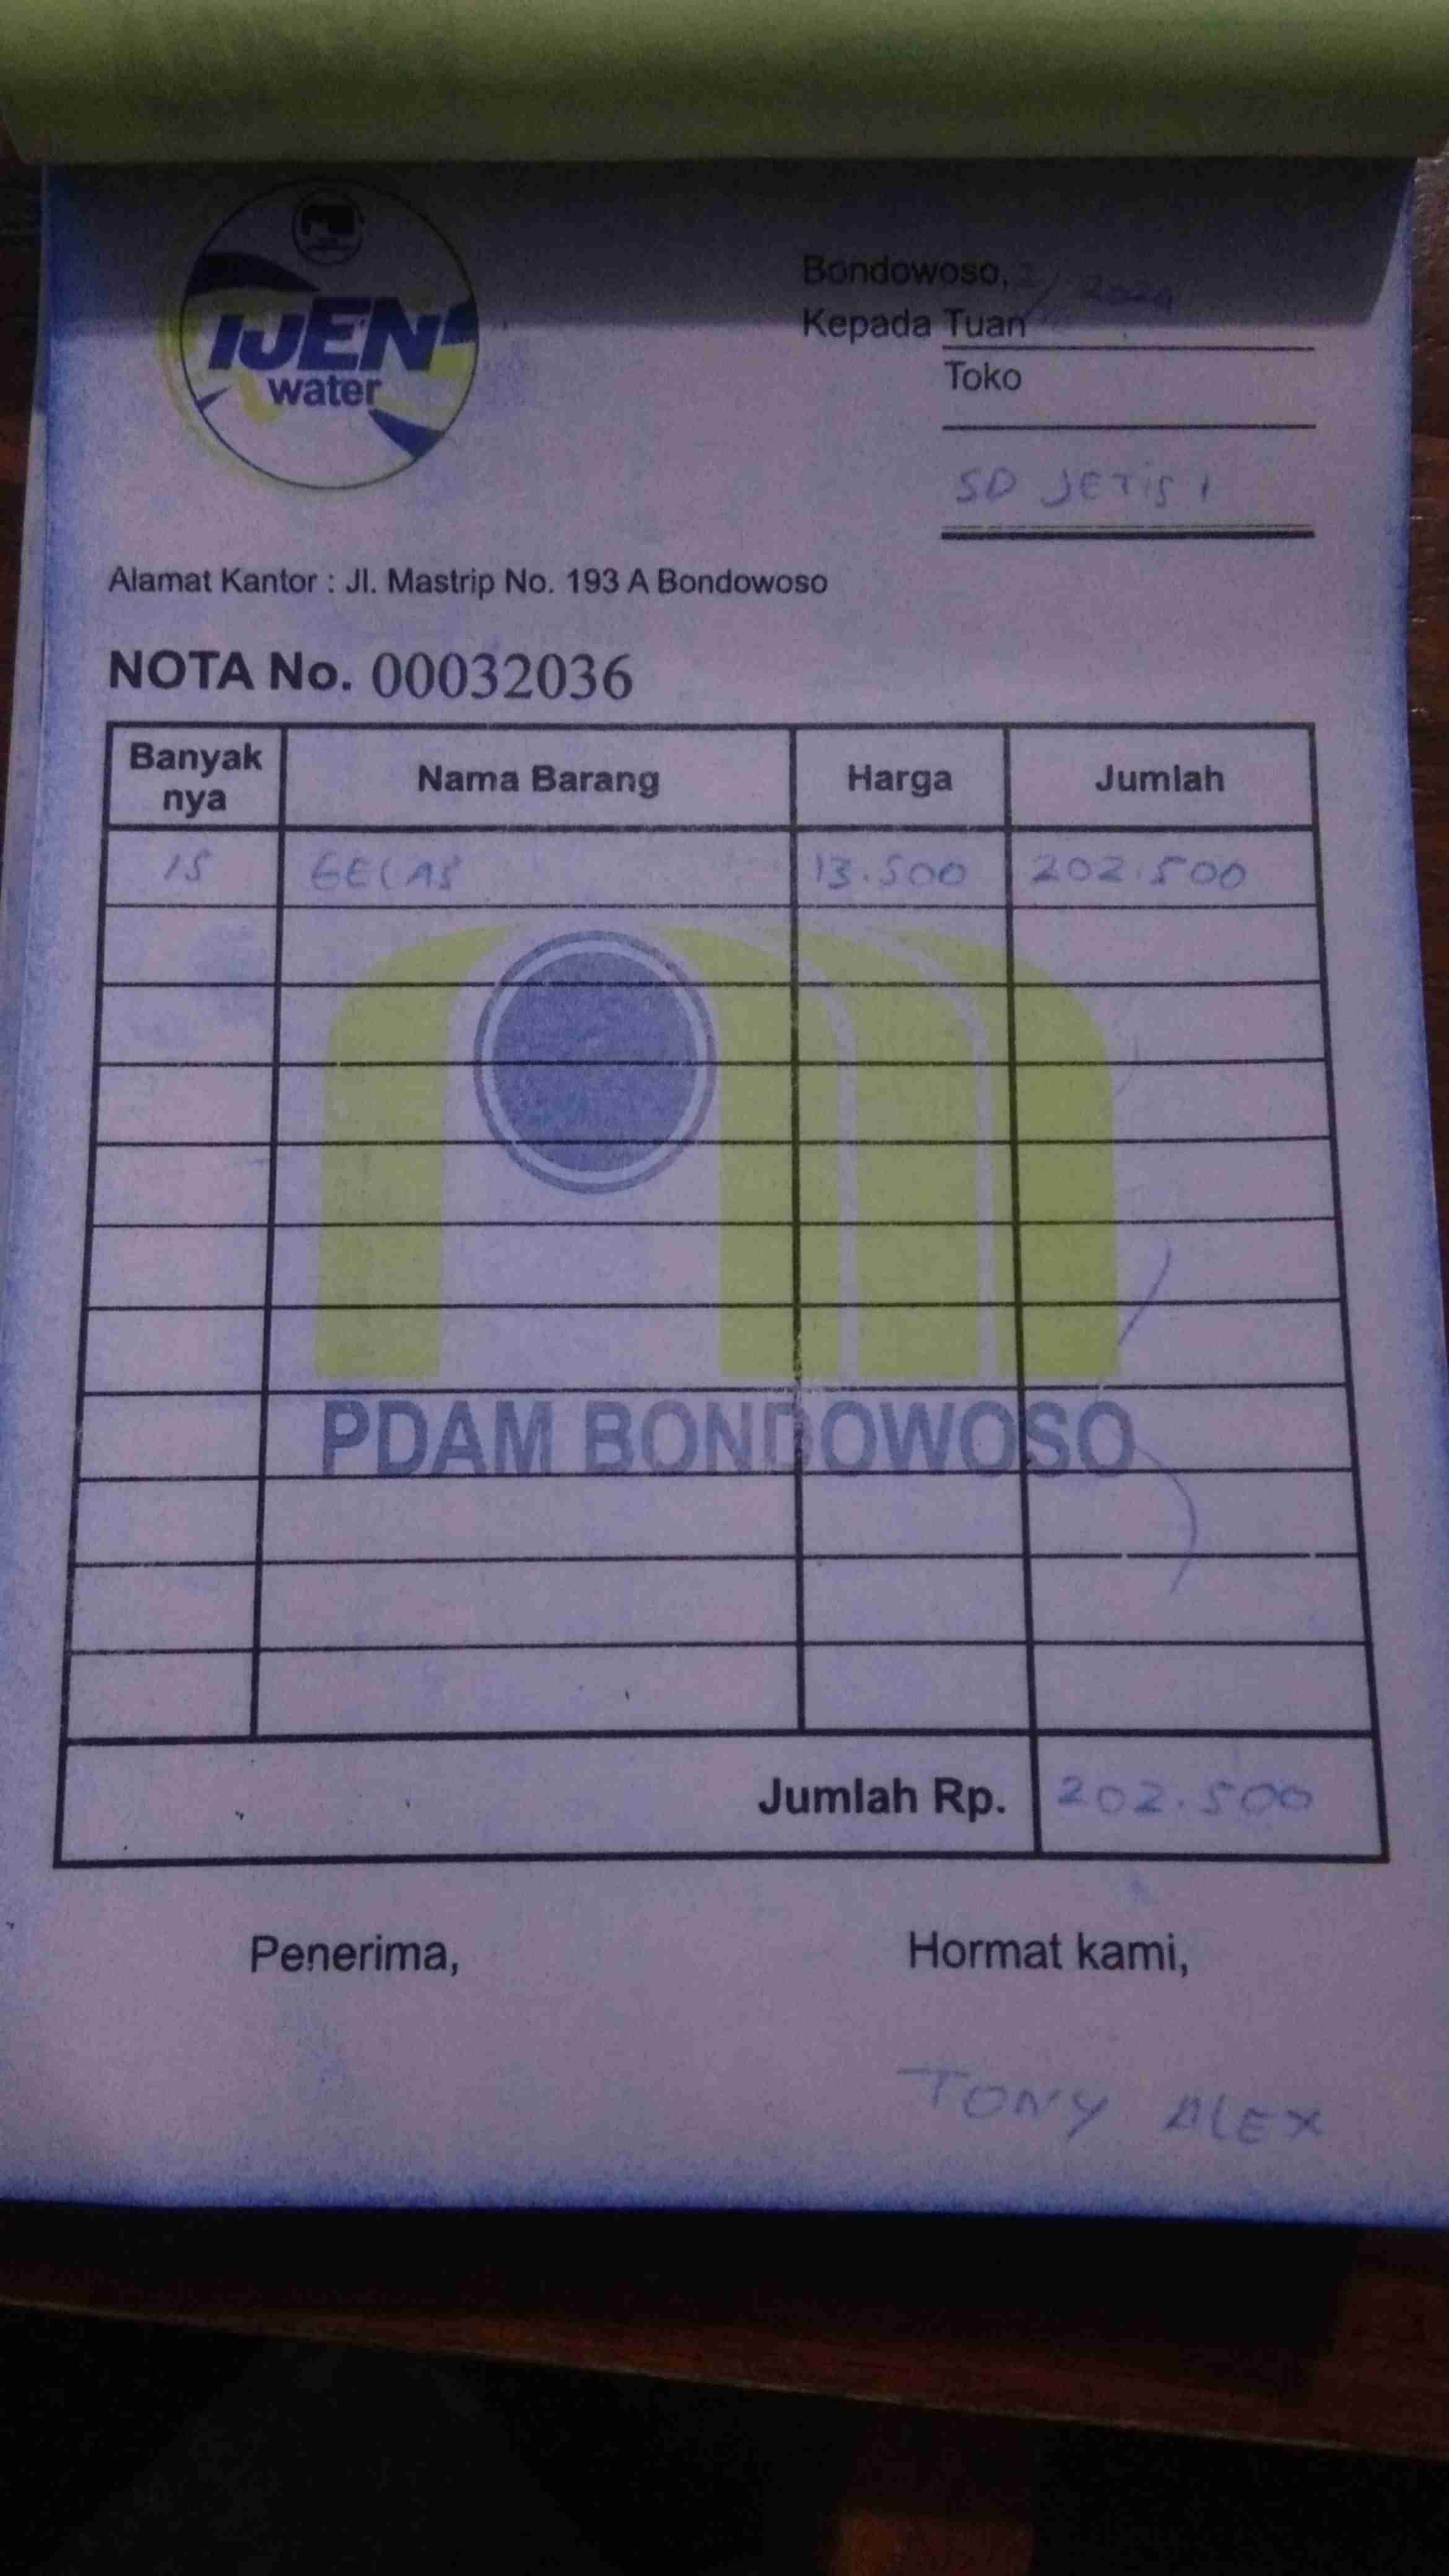 IJEN
water
Bondowoso, 2024
Kepada Tuan
Toko
SD JETIS 1
Alamat Kantor : Jl. Mastrip No. 193 A Bondowoso
NOTA No. 00032036
Banyak nya Nama Barang Harga Jumlah
15 GELAS 13.500 202.500
PDAM BONDOWOSO
Jumlah Rp. 202.500
Penerima, Hormat kami,
TONY ALEX